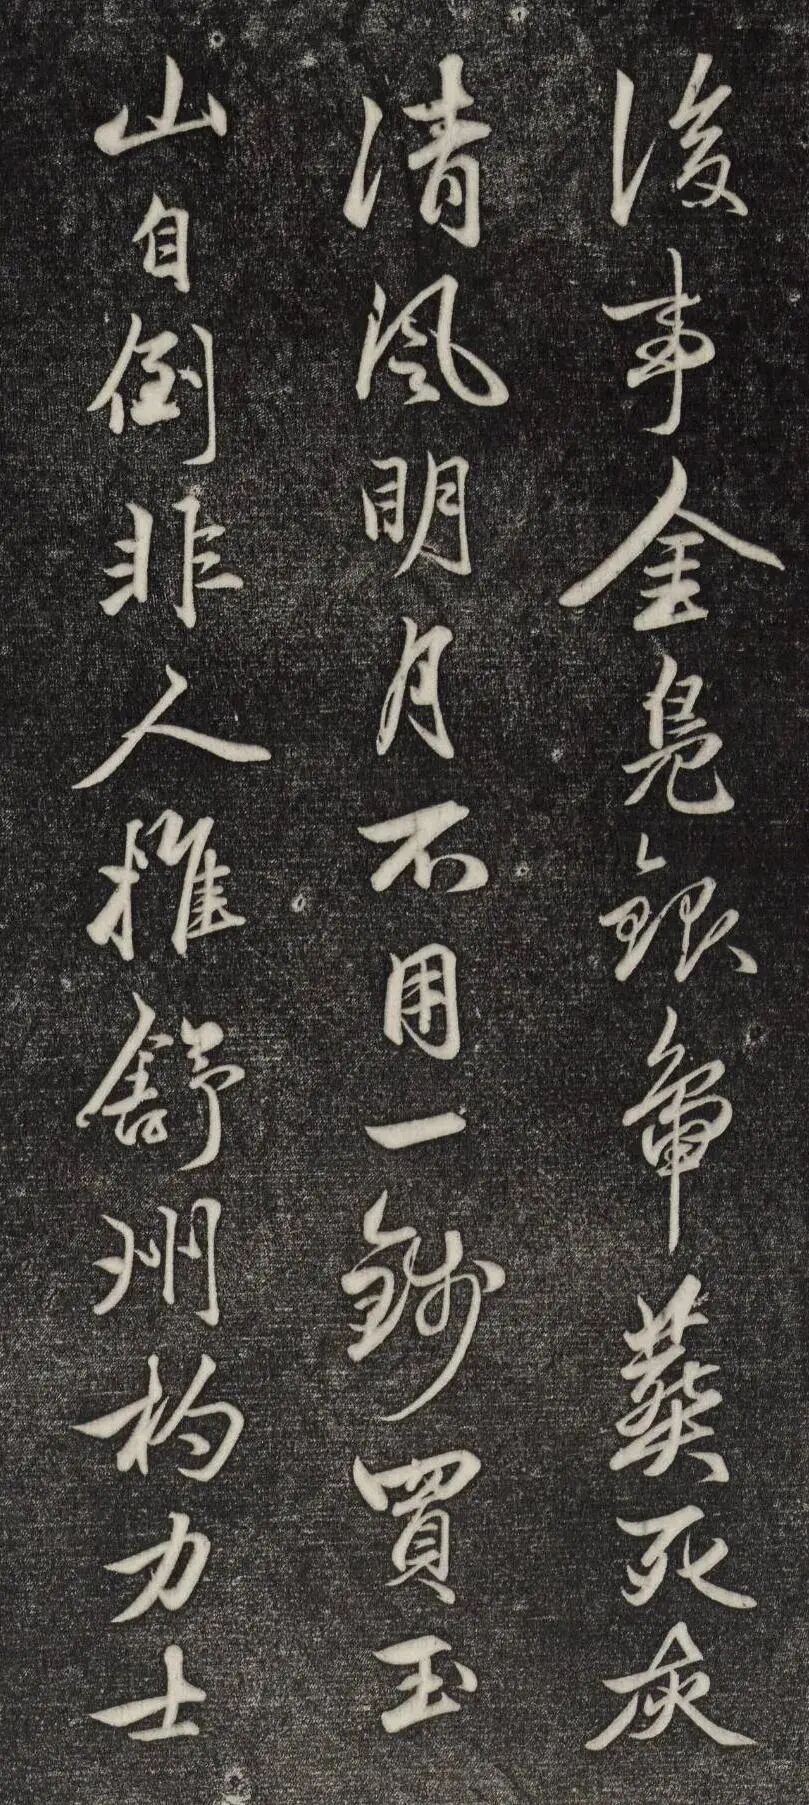 後事金鳧銀鴨葬死灰
清風明月不用一錢買玉
山自倒非人推舒州杓力士